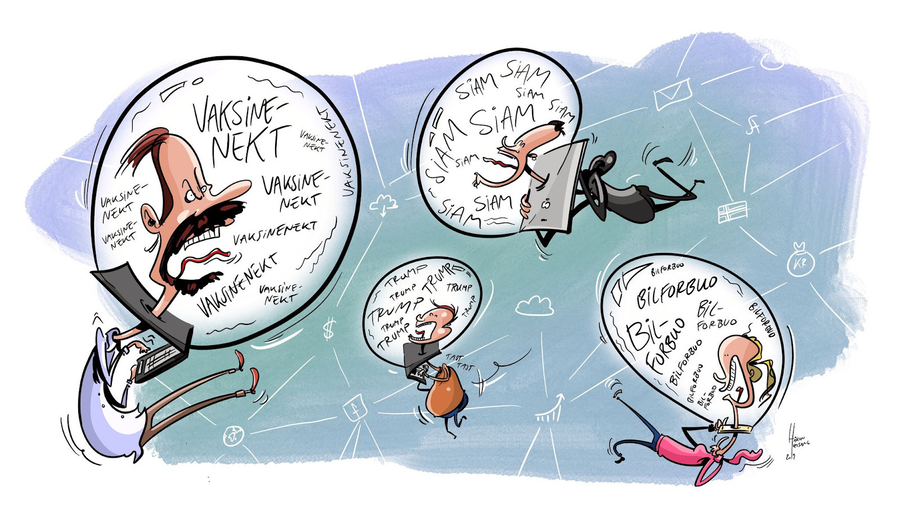 VAKSINE-
NEKT
VAKSINE-
NEKT
VAKSINENEKT
VAKSINE-
NEKT
VAKSINE-
NEKT
VAKSINE-
NEKT
VAKSINENEKT
VAKSINENEKT
VAKSINE-
NEKT
SIAM SIAM
SIAM
SIAM
SIAM
SIAM
SIAM
SIAM
SIAM
TRUMP
TRUMP TRUMP
TRUMP
TRUMP
TRUMP
TRUMP
TRUMP
TAST
TAST
BILFORBUD
BILFORBUD
BIL-
FORBUD
BIL-
FORBUD
BILFORBUD
BILFORBUD
BILFORBUD
BIL-
FORBUD
$
KR